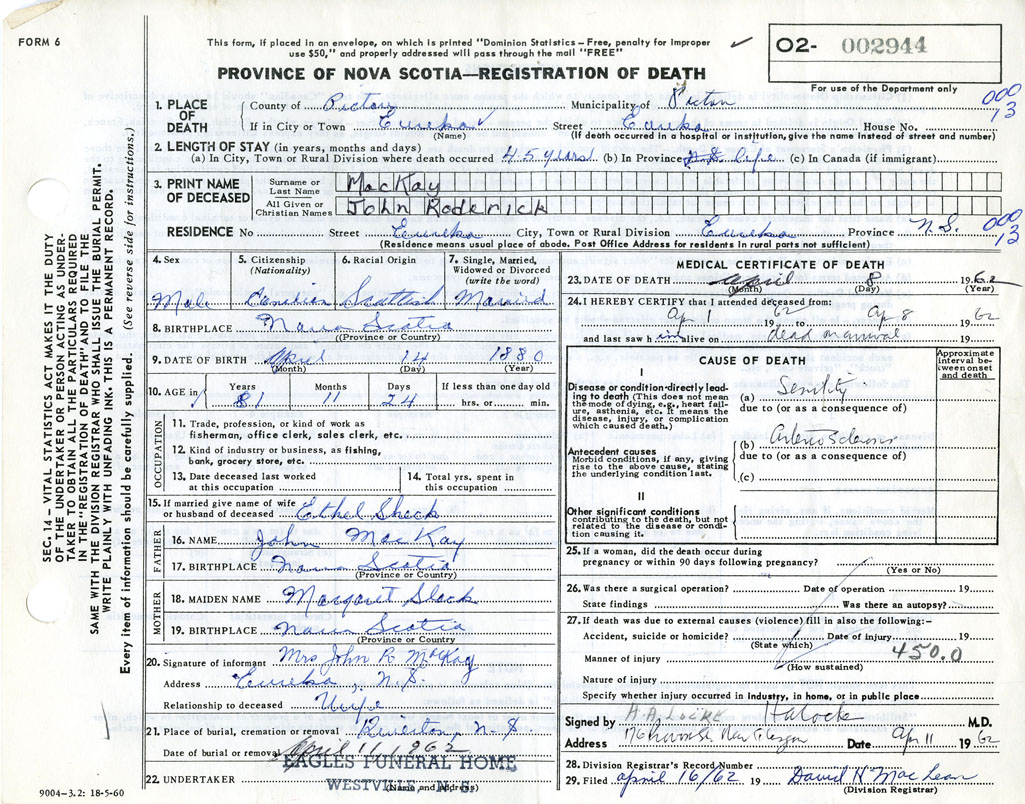 FORM 6
This form, if placed in an envelope, on which is printed "Dominion Statistics – Free, penalty for improper
use $50," and properly addressed will pass through the mail "FREE"
02- 002944
PROVINCE OF NOVA SCOTIA—REGISTRATION OF DEATH
For use of the Department only
1. PLACE OF DEATH
County of Pictou Municipality of Pictou 000
If in City or Town Eureka Street Eureka House No. 13
(Name) (If death occurred in a hospital or institution, give the name instead of street and number)
2. LENGTH OF STAY (in years, months and days)
(a) In City, Town or Rural Division where death occurred 45 years (b) In Province N.S. life (c) In Canada (if immigrant)
3. PRINT NAME OF DECEASED
Surname or Last Name MacKay
All Given or Christian Names John Roderick
RESIDENCE No Street Eureka City, Town or Rural Division Eureka Province N.S. 000 13
(Residence means usual place of abode. Post Office Address for residents in rural parts not sufficient)
4. Sex Male
5. Citizenship (Nationality) Canadian
6. Racial Origin Scottish
7. Single, Married, Widowed or Divorced (write the word) Married
8. BIRTHPLACE Nova Scotia
(Province or Country)
9. DATE OF BIRTH April 14 1880
(Month) (Day) (Year)
10. AGE in Years 81 Months 11 Days 24 If less than one day old hrs. or min.
OCCUPATION
11. Trade, profession, or kind of work as
fisherman, office clerk, sales clerk, etc.
12. Kind of industry or business, as fishing,
bank, grocery store, etc.
13. Date deceased last worked
at this occupation
14. Total yrs. spent in
this occupation
15. If married give name of wife
or husband of deceased Ethel Sheck
FATHER
16. NAME John MacKay
17. BIRTHPLACE Nova Scotia
(Province or Country)
MOTHER
18. MAIDEN NAME Margaret
19. BIRTHPLACE Nova Scotia
(Province or Country
20. Signature of informant Mrs John R. MacKay
Address Eureka, N.S.
Relationship to deceased Wife
21. Place of burial, cremation or removal Riverton, N.S
Date of burial or removal April 11, 1962
EAGLES FUNERAL HOME
22. UNDERTAKER WESTVILLE N. S.
(Name and Address)
9004-3.2: 18-5-60
MEDICAL CERTIFICATE OF DEATH
23. DATE OF DEATH April 8 1962
(Month) (Day) (Year)
24. I HEREBY CERTIFY that I attended deceased from:
Apr 1 1962 to Apr 8 1962
and last saw him alive on dead on arrival 19
CAUSE OF DEATH
Approximate interval between onset and death
I
Disease or condition directly leading to death (This does not mean the mode of dying, e.g., heart failure, asthenia, etc. It means the disease, injury, or complication which caused death.)
(a) Senility
due to (or as a consequence of)
Antecedent causes
Morbid conditions, if any, giving rise to the above cause, stating the underlying condition last.
(b) Arteriosclerosis
due to (or as a consequence of)
(c)
II
Other significant conditions
contributing to the death, but not related to the disease or condition causing it.
25. If a woman, did the death occur during
pregnancy or within 90 days following pregnancy?
(Yes or No)
26. Was there a surgical operation? Date of operation 19
State findings Was there an autopsy?
27. If death was due to external causes (violence) fill in also the following:—
Accident, suicide or homicide? Date of injury 19
(State which)
450.0
Manner of injury
(How sustained)
Nature of injury
Specify whether injury occurred in industry, in home, or in public place
Signed by H.A. LOCKE HA Locke M.D.
Address New Glasgow Date Apr 11 1962
28. Division Registrar's Record Number
29. Filed April 16/62 19 David N MacLean
(Division Registrar)
SEC. 14 – VITAL STATISTICS ACT MAKES IT THE DUTY
OF THE UNDERTAKER OR PERSON ACTING AS UNDER-
TAKER TO OBTAIN ALL THE PARTICULARS REQUIRED
IN THE "REGISTRATION OF DEATH" AND FILE THE
SAME WITH THE DIVISION REGISTRAR WHO SHALL ISSUE THE BURIAL PERMIT.
WRITE PLAINLY WITH UNFADING INK. THIS IS A PERMANENT RECORD.
Every item of information should be carefully supplied. (See reverse side for instructions.)